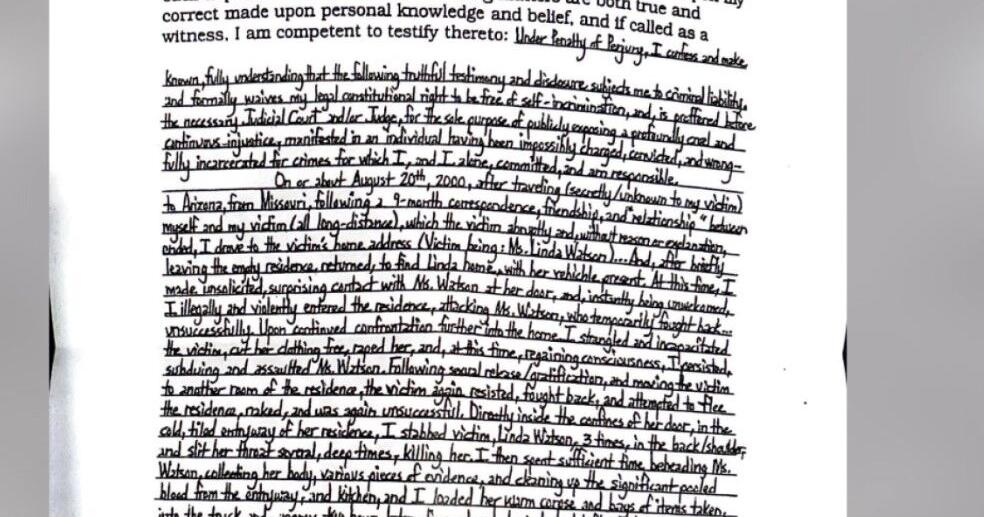 correct made upon personal knowledge and belief, and if called as a
witness, I am competent to testify thereto: Under Penalty of Perjury, I confess and make
Known, fully understanding that the following truthful testimony and disclosure subjects me to criminal liability,
and formally waives my legal constitutional right to be free of self-incrimination, and, is proffered before
the necessary Judicial Court and/or Judge, for the sole purpose of publicly exposing a profoundly cruel and
continuous-injustice, manifested in an individual having been impossibly charged, convicted, and wrong-
fully incarcerated for crimes for which I, and I alone, committed, and am responsible.
On or about August 20th, 2000, after traveling (secretly/unknown to my victim)
to Arizona, from Missouri, following a 9-month correspondence, friendship, and relationship" between
myself and my victim (all long-distance), which the victim abruptly and, without reason or explanation,
ended, I drove to the victim's home address (Victim being: Ms. Linda Watson)... And, after briefly
leaving the empty residence, returned, to find Linda home, with her vehichle present. At this time, I
made unsolicited, surprising contact with Ms. Watson at her door, and, instantly being unwelcomed,
I illegally and violently entered the residence, attacking Ms. Watson, who temporarily fought back...
unsuccessfully. Upon continued confrontation further into the home I strangled and incapacitated
the victim, cut her clothing free, raped her, and, at this time, regaining consciousness, I persisted,
subduing and assaulted Ms. Watson. Following sexual release/gratification, and moving the victim
to another room of the residence, the victim again resisted, fought back, and attempted to flee
the residence, naked, and was again unsuccessful. Directly inside the confines of her door, in the
cold, tiled entryway of her residence, I stabbed victim, Linda Watson, 3 times, in the back/shoulder,
and slit her throat several, deep times, killing her. I then spent sufficient time, beheading Ms.
Watson, collecting her body, various pieces of evidence, and cleaning up the significant pooled
blood from the entryway, and kitchen, and I loaded her warm corpse and bags of items taken,
into the truck and